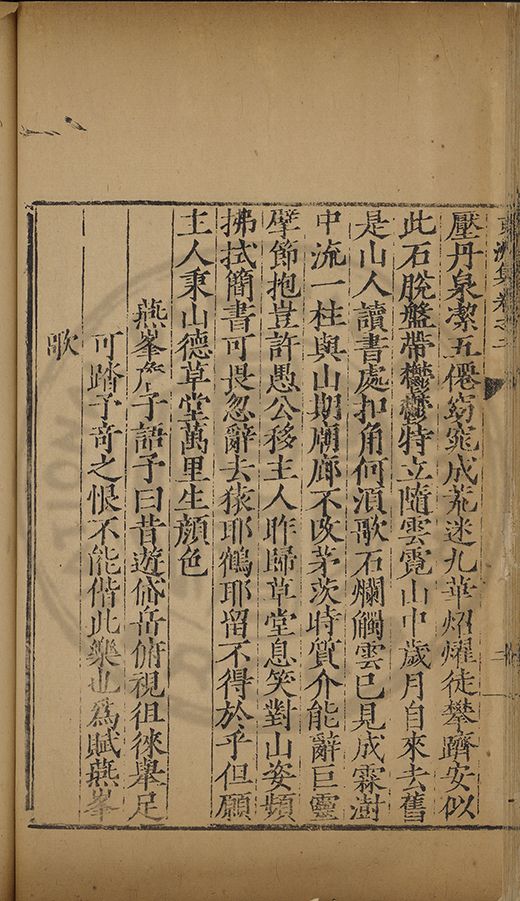 東洲集卷之二
壓丹泉潔五僊窈窕成荒迷九華炤燿徒攀躋安似
此石脫盤帶鬱鬱特立隨雲霓山中歲月自來去舊
是山人讀書處扣角何須歌石爛觸雲已見成霖澍
中流一柱與山期廟廊不改茅茨時質介能辭巨靈
擘節抱豈許愚公移主人昨歸草堂息笑對山姿頻
拂拭簡書可畏忽辭去猿耶鶴耶留不得於乎但願
主人秉山德草堂萬里生顔色
燕峯詹子語予曰昔遊岱岳俯視徂徠舉足
可踏予奇之恨不能偕此樂也爲賦燕峯
歌